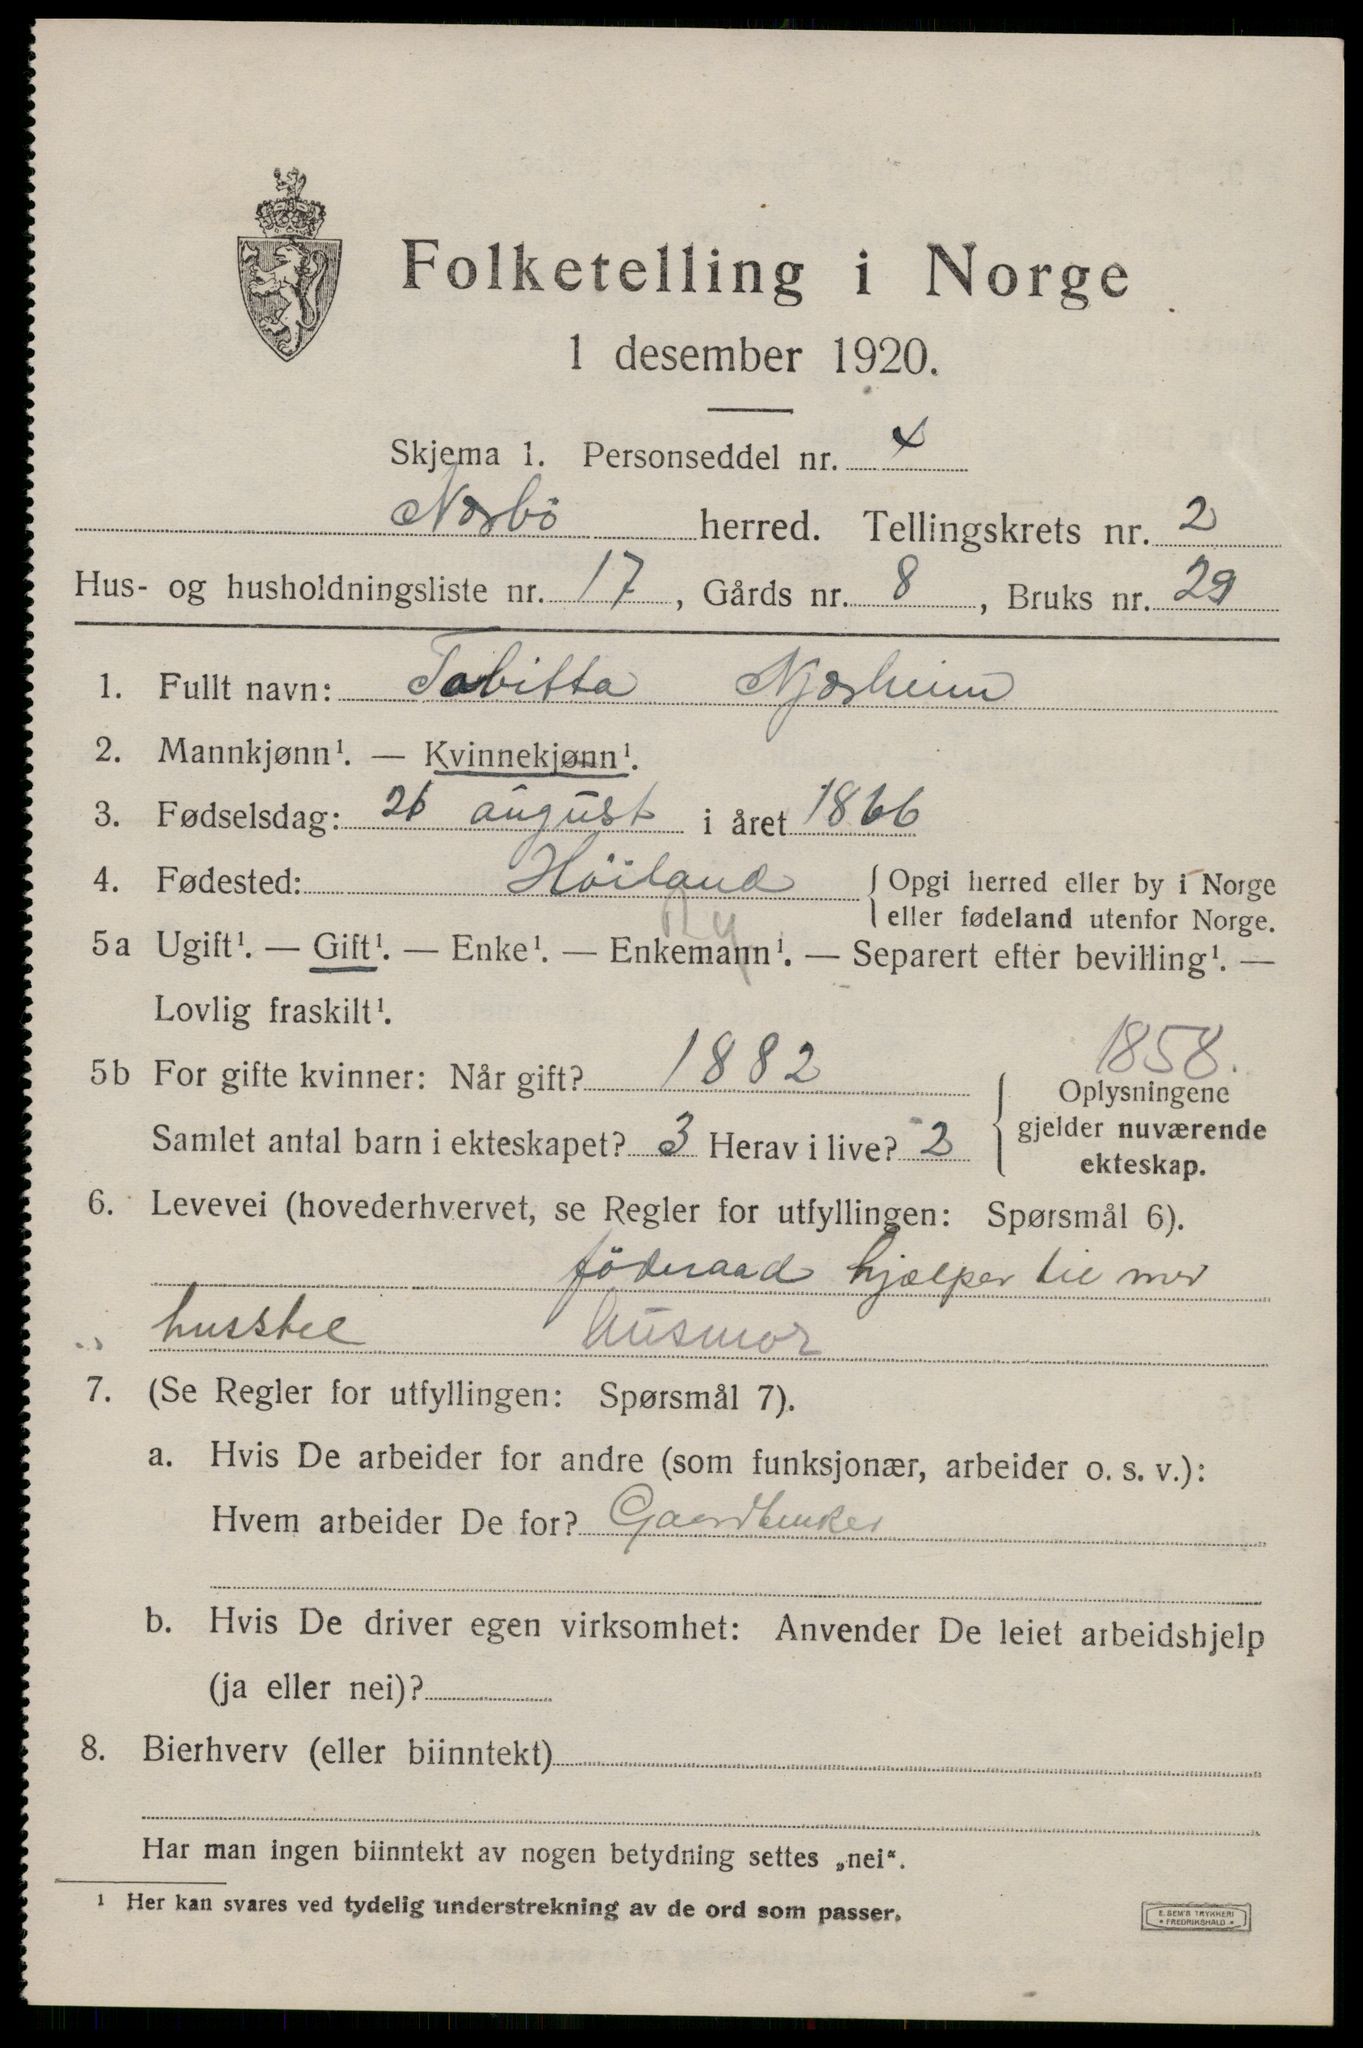 Folketelling i Norge
1 desember 1920.
Skjema 1. Personseddel nr. 4
Nærbö herred. Tellingskrets nr. 2
Hus- og husholdningsliste nr. 17, Gårds nr. 8, Bruks nr. 29
1. Fullt navn: Tabitta Njærheim
2. Mannkjønn¹. — Kvinnekjønn¹.
3. Fødselsdag: 26 august i året 1866
4. Fødested: Höiland { Opgi herred eller by i Norge
eller fødeland utenfor Norge.
Ry
5a Ugift¹. — Gift¹. — Enke¹. — Enkemann¹. — Separert efter bevilling¹. —
Lovlig fraskilt¹.
1858.
5b For gifte kvinner: Når gift? 1882
Samlet antal barn i ekteskapet? 3 Herav i live? 2
Oplysningene
gjelder nuværende
ekteskap.
6. Levevei (hovederhvervet, se Regler for utfyllingen: Spørsmål 6).
föderaad hjælper til med
husstel husmor
7. (Se Regler for utfyllingen: Spørsmål 7).
a. Hvis De arbeider for andre (som funksjonær, arbeider o. s. v.):
Hvem arbeider De for? Gaardbruker
b. Hvis De driver egen virksomhet: Anvender De leiet arbeidshjelp
(ja eller nei)?
8. Bierhverv (eller biinntekt)
Har man ingen biinntekt av nogen betydning settes „nei“.
¹ Her kan svares ved tydelig understrekning av de ord som passer.
E. SEM'S TRYKKERI
FREDRIKSHALD